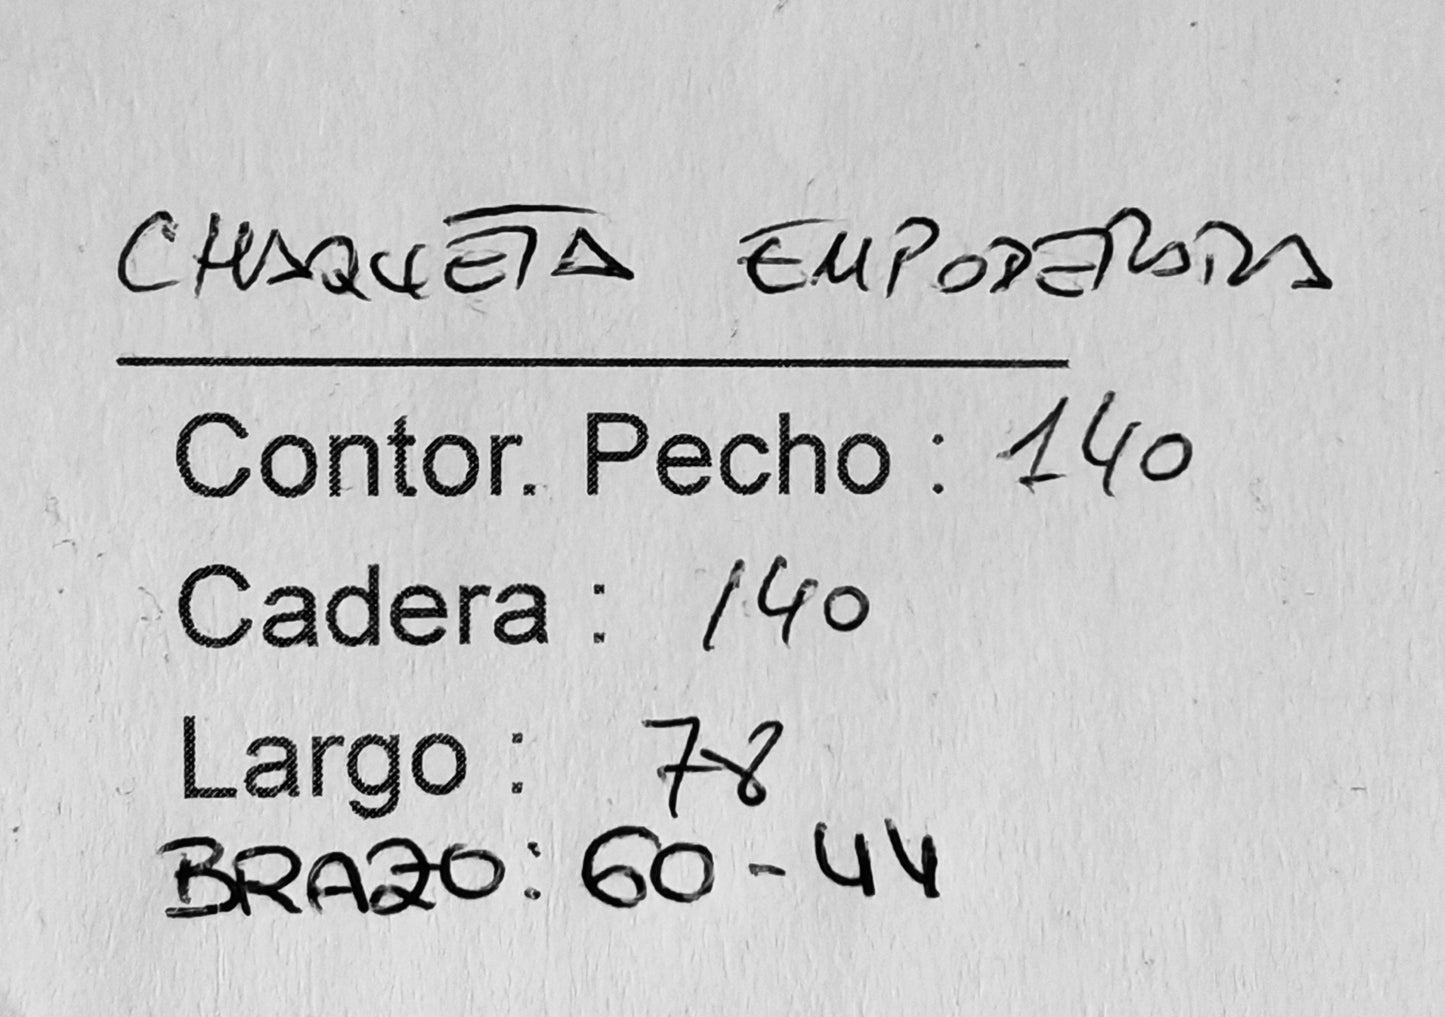 CHAQUETA EMPODERADA
Contor. Pecho : 140
Cadera : 140
Largo : 78
BRAZO: 60-44